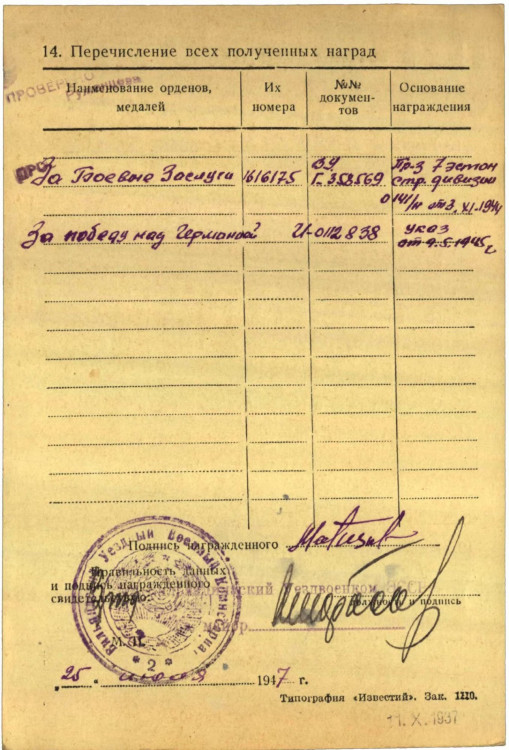 14. Перечисление всех полученных наград
ПРОВЕРЕНО
Наименование орденов, медалей
Их номера
№№ документов
Основание награждения
За Боевые Заслуги 1616175 ВУ Г. 358569 Пр-з 7 эстон стр. дивизии 0141/н от 3.XI.1944
За победу над Германией И-0112838 указ от 9.5.1945 г
Подпись награжденного
Правильность данных
и подпись награжденного
свидетельствую:
Должность и подпись
М. П.
Уездный Военный Комиссариат
* 2 *
25 июля 1947 г.
Типография «Известий». Зак. 1110.